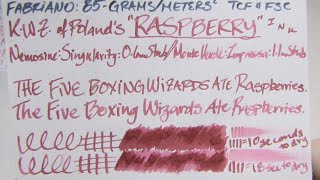 FABRIANO: 85-GRAMS/METERS² TCF & FSC
K.W.Z. of Poland's "RASPBERRY" Ink
Nemosine: Singularity: 0.6mm Stub / Monte Verde: Impressa: 1.1mm Stub
THE FIVE BOXING WIZARDS ATE RASPBERRIES.
The Five Boxing Wizards Ate Raspberries.
=10 seconds to dry
=18 sec to dry